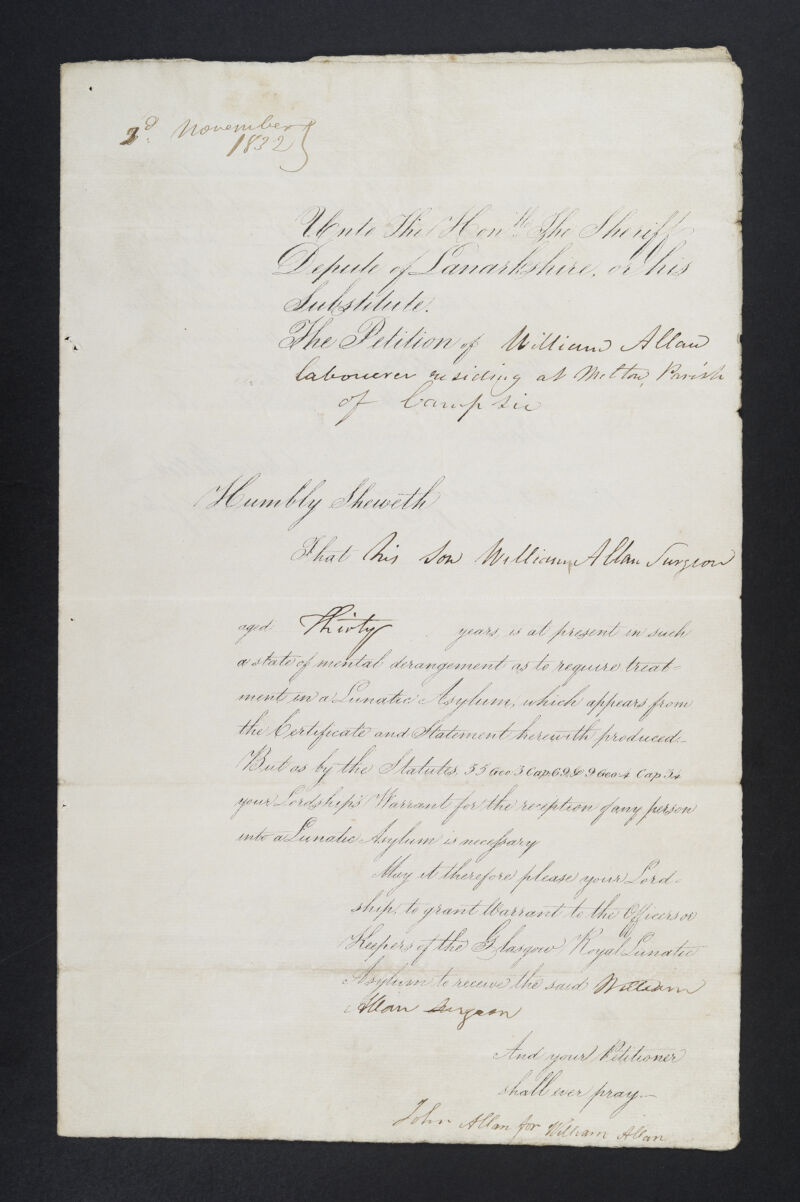 2d. November
1832
Unto The Honble The Sheriff
Depute of Lanarkshire, or his
Substitute.
The Petition of William Allan
labourer residing at Melton, Parish
of Campsie
Humbly Sheweth
That his Son William Allan Surgeon
aged Thirty years, is at present in such
a state of mental derangement as to require treat-
ment in a Lunatic Asylum, which appears from
the Certificate and Statement herewith produced.
But as by the Statutes, 55 Geo 3 Cap. 69 & 9 Geo 4 Cap 34
your Lordship's Warrant for the reception of any person
into a Lunatic Asylum is necessary
May it therefore please your Lord-
ship, to grant Warrant to the Officers or
Keepers of the Glasgow Royal Lunatic
Asylum to receive the said William
Allan Surgeon
And your Petitioner
shall ever pray.—
John Allan for William Allan